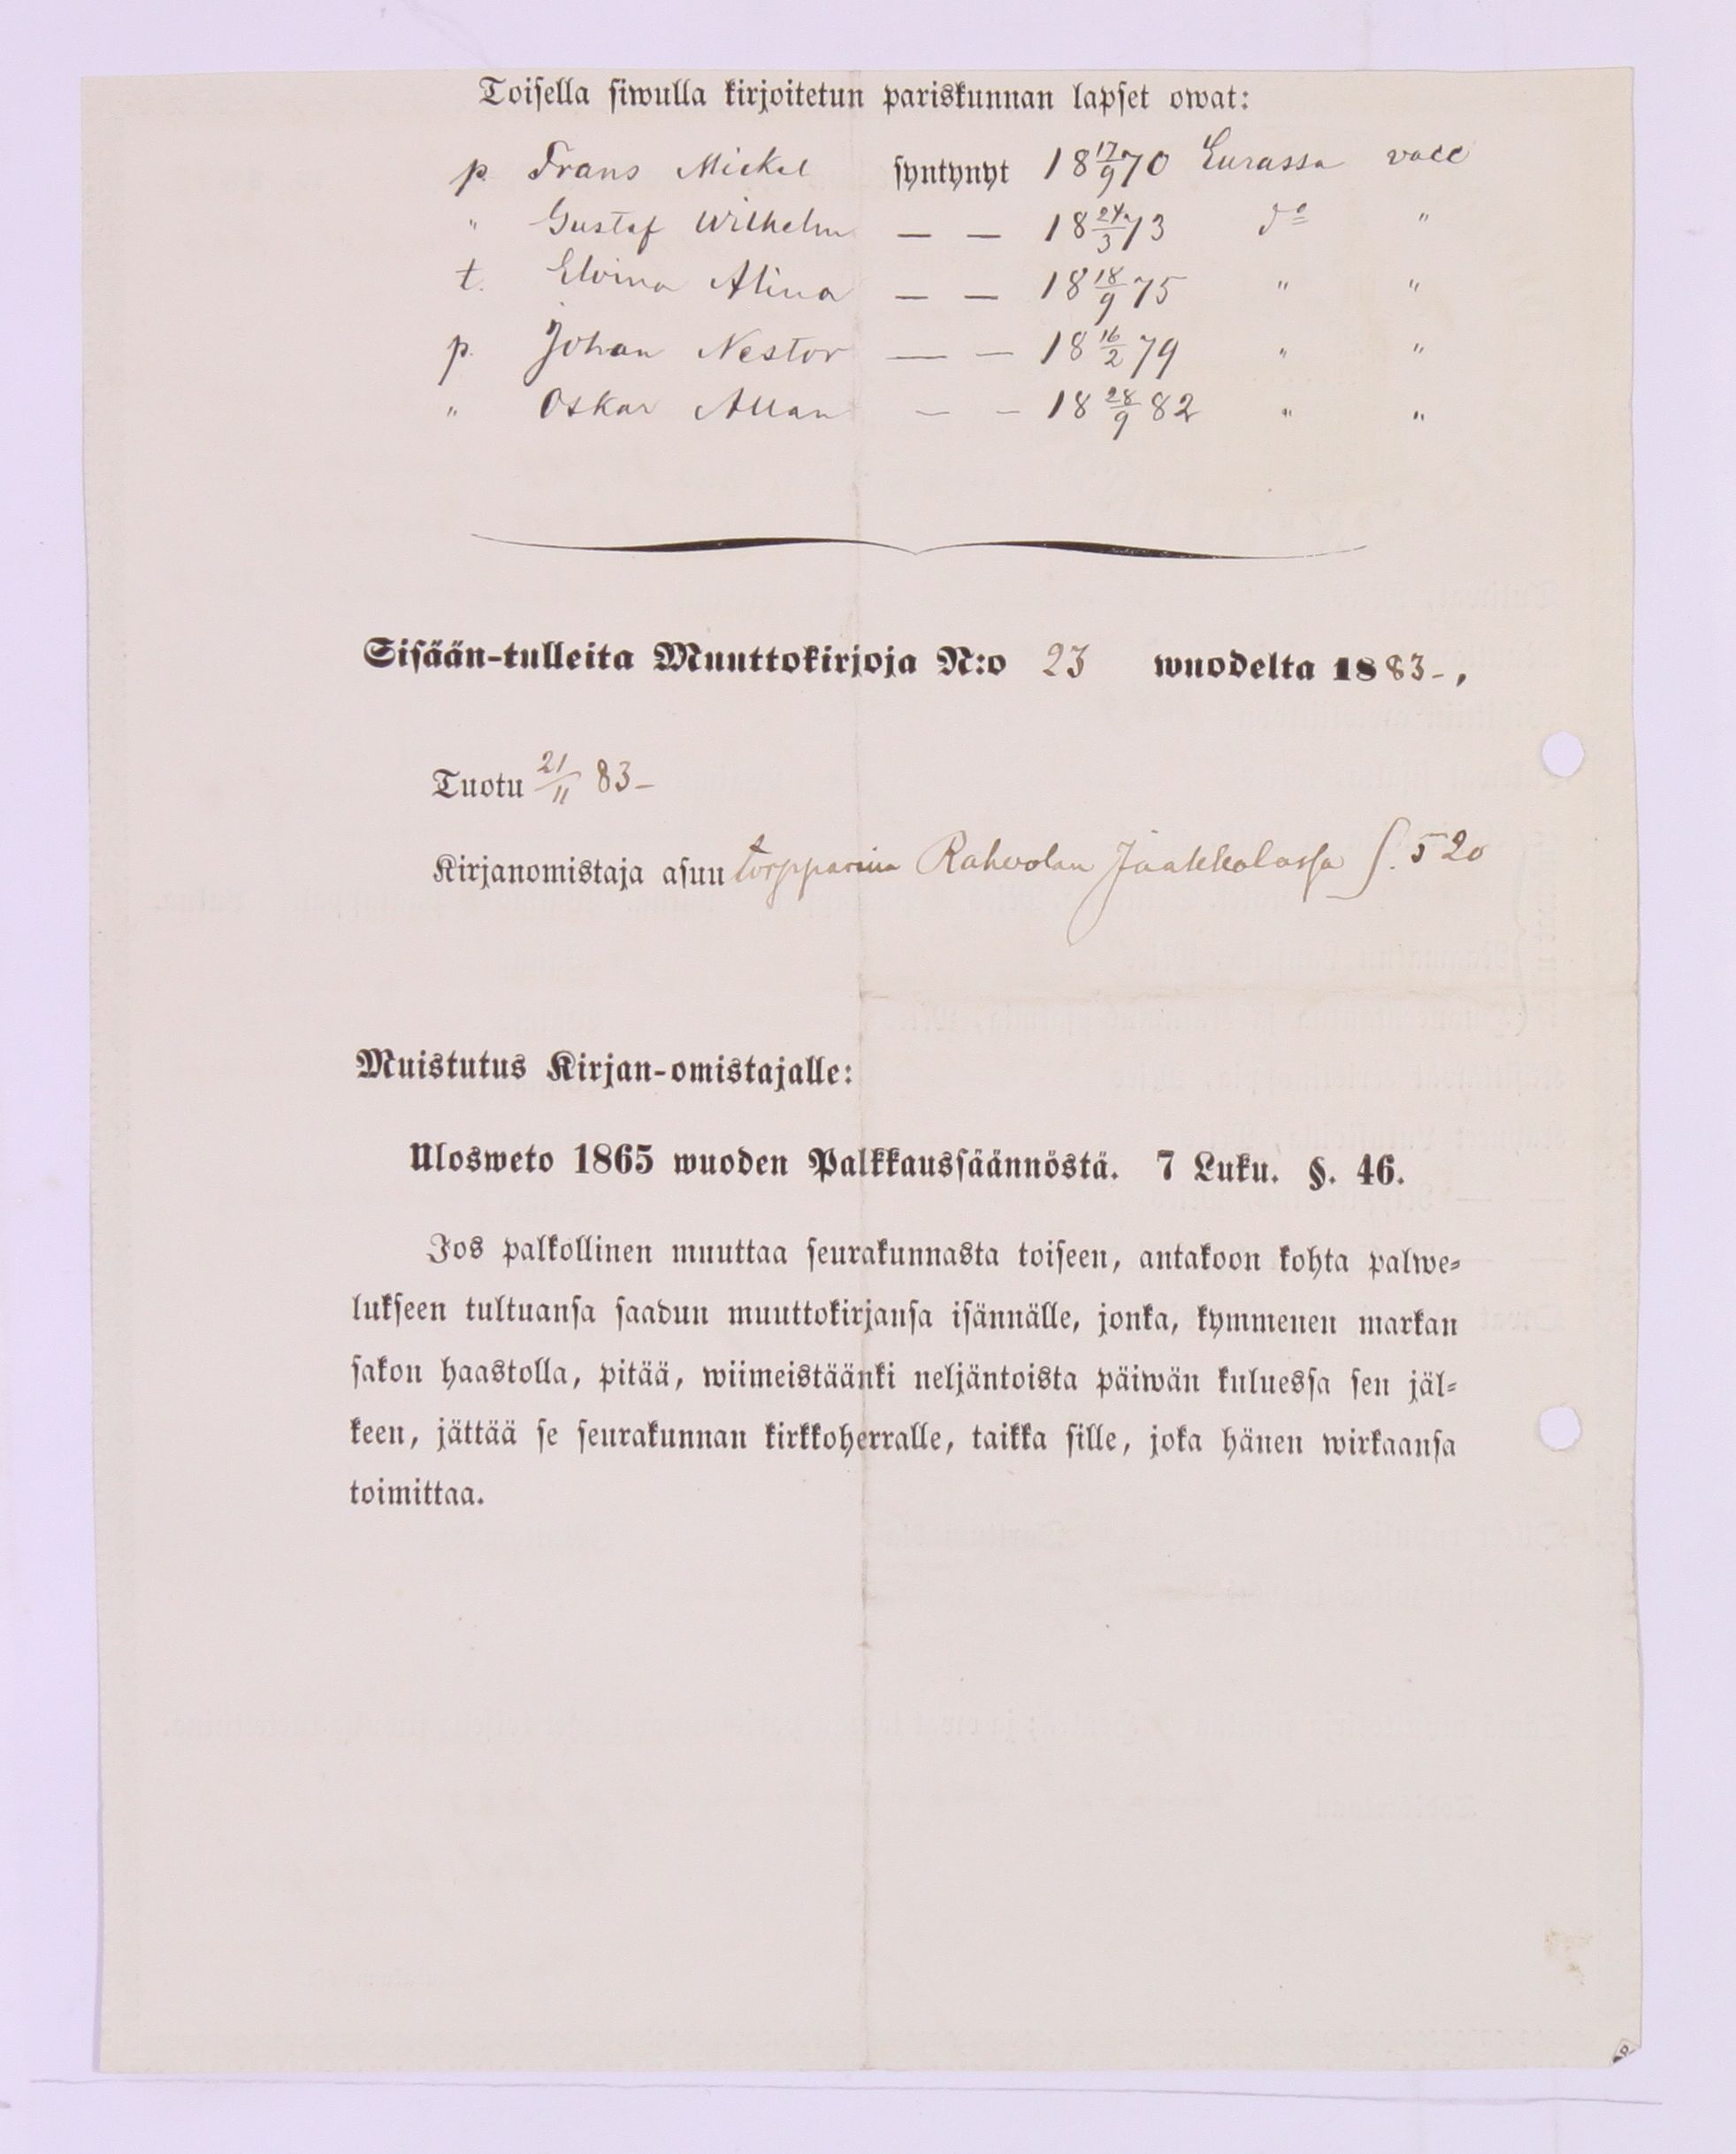 Toisella siwulla kirjoitetun pariskunnan lapset owat:
p. Frans Mickel syntynyt 18 17/9 70 Eurassa vacc
" Gustaf Wilhelm — — 18 24/3 73 d:o "
t. Elvina Alina — — 18 18/9 75 " "
p. Johan Nestor — — 18 16/2 79 " "
" Oskar Allan — — 18 28/9 82 " "
Sisään-tulleita Muuttokirjoja N:o 23 wuodelta 1883-,
Tuotu 21/11 83-
Kirjanomistaja asuu torpparina Rahvolan Jaakkolassa S. 520
Muistutus Kirjan-omistajalle:
Ulosweto 1865 wuoden Palkkaussäännöstä. 7 Luku. §. 46.
Jos palkollinen muuttaa seurakunnasta toiseen, antakoon kohta palwe-
lukseen tultuansa saadun muuttokirjansa isännälle, jonka, kymmenen markan
sakon haastolla, pitää, wiimeistäänki neljäntoista päiwän kuluessa sen jäl-
keen, jättää se seurakunnan kirkkoherralle, taikka sille, joka hänen wirkaansa
toimittaa.